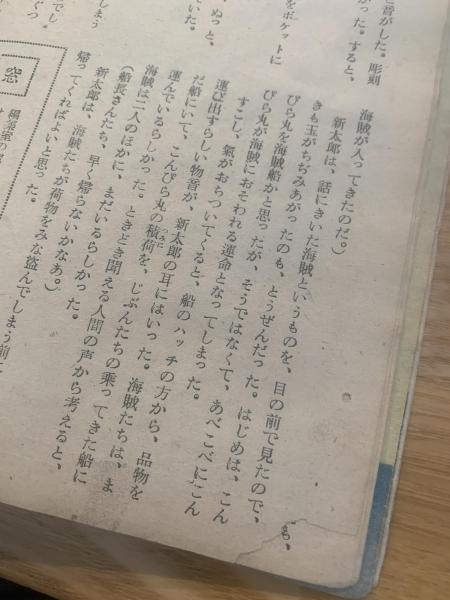 と音がした。彫刻
かった。すると、
をポケットに
ぬっと、
ていた。
しまう
も、
海賊が入ってきたのだ。)
新太郎は、話にきいた海賊というものを、目の前で見たので、
きも玉がちぢみあがったのも、とうぜんだった。はじめは、こん
ぴら丸を海賊船かと思ったが、そうではなくて、あべこべにこん
ぴら丸が海賊におそわれる運命となってしまった。
すこし、氣がおちついてくると、船のハッチの方から、品物を
運び出すらしい物音が、新太郎の耳にはいった。海賊たちは、ま
だ船にいて、こんぴら丸の積荷を、じぶんたちの乗ってきた船に
運んでいるらしかった。ときどき聞える人間の声から考えると、
海賊は二人のほかに、まだいるらしかった。
(船長さんたち、早く帰らないかなあ。)
新太郎は、海賊たちが荷物をみな盗んでしまう前に
帰ってくればよいと思った。
窓